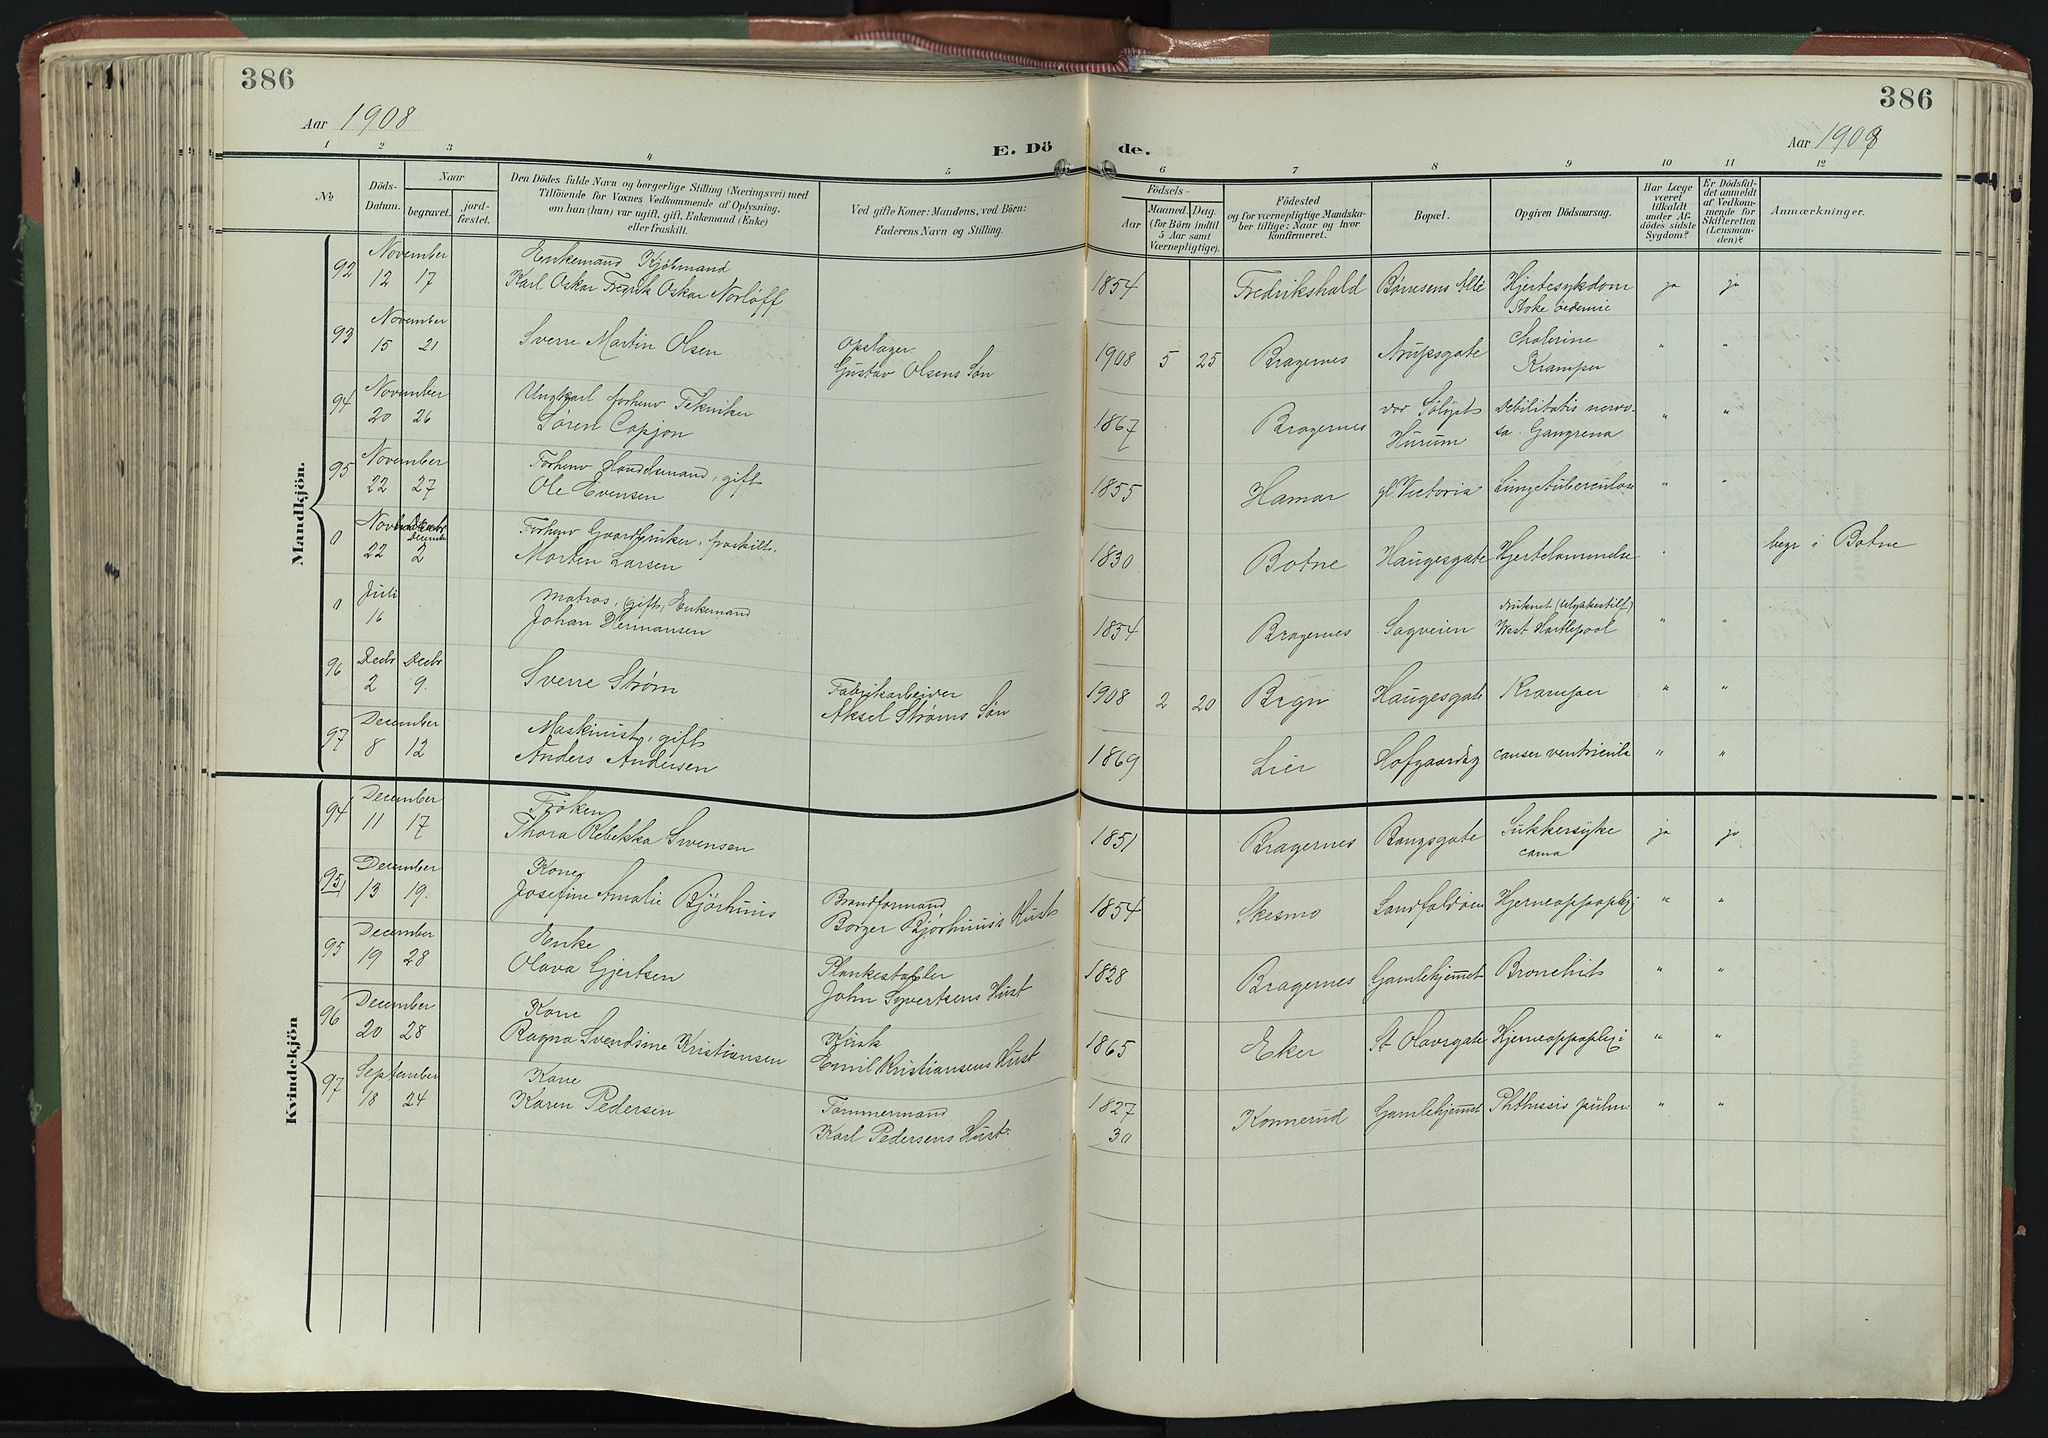 386
386
Aar 1908
E. Dö de.
Aar 1908
1 2 3 4 5 6 7 8 9 10 11 12
№
Döds-Datum.
Naar
begravet.
jord-fæstet.
Den Dödes fulde Navn og borgerlige Stilling (Næringsvei) med
Tilföiende for Voxnes Vedkommende af Oplysning,
om han (hun) var ugift, gift, Enkemand (Enke)
eller fraskilt.
Ved gifte Koner: Mandens, ved Börn:
Faderens Navn og Stilling.
Födsels-
Aar
Maaned. Dag.
(for Börn indtil
5 Aar samt
Værnepligtige).
Födested
og for værnepligtige Mandska-
ber tillige: Naar og hvor
konfirmeret.
Bopæl.
Opgiven Dödsaarsag.
Har Læge
været
tilkaldt
under Af-
dödes sidste
Sygdom?
Er Dödsfal-
det anmeldt
af Vedkom-
mende for
Skifteretten
(Lensman-
den)?
Anmærkninger.
Mandkjön.
92 November Enkemand Kjøbmand
12 17 Karl Oskar Fredrik Oskar Norløff 1854 Fredrikshald Børresens Allé Hjertesykdom ja ja
93 November
15 21 Sverre Martin Olsen Opslager
Gustav Olsens Søn 1908 5 25 Bragernes Arupsgate Cholerine " "
Kramper
94 November Ungkarl forhenv Tekniker
20 26 Søren Copjon 1867 Bragernes Hurum Debilitatis nervo-
sa. Gangrena " "
95 November Forhenv Handelsmand, gift
22 27 Ole Evensen 1855 Hamar gl. Victoria Lungetuberculose " "
0 November December Forhenv Gaardbruker, fraskilt.
22 2 Morten Larsen 1830 Botne Haugesgate Hjertelammelse " begr i Botne
0 Juli Matros, (gift) Enkemand
16 Johan Hermansen 1854 Bragernes Sagveien Druknet (Ulykkestilf)
West Hartlepool " "
96 Decbr Decbr
2 9. Sverre Strøm Fabrikarbeider
Aksel Strøms Søn 1908 2 20 Brgn Haugesgate Kramper " "
97 December Maskinist, gift
8 12 Anders Andersen 1869 Lier Hofgaardsg canser ventricula " "
Kvindekjön
94 December Frøken
11 17 Thora Rebekka Svensen 1851 Bragernes Bangsgate Sukkersyke ja ja
coma
95 December Kone
13 19. Josefine Amalie Bjørhuus Brandformand
Borger Bjørhuus's Hust 1854 Skesmo Landfaldøen Hjerneappoplexi " "
95 December Enke
19 28 Olava Gjertsen Plankestabler
John Syvertsens Hust 1828 Bragernes Gamlehjemmet Bronchit " "
96 December Kone
20 28 Ragna Svendsine Kristiansen Kusk
Emil Kristiansens Hust 1865 Eker St Olavsgate Hjerneappoplexi " "
97 September Kone
18 24 Karen Pedersen Tømmermand
Karl Pedersens Hust. 1827 30 Konnerud Gamlehjemmet Phthissis pulm. " "